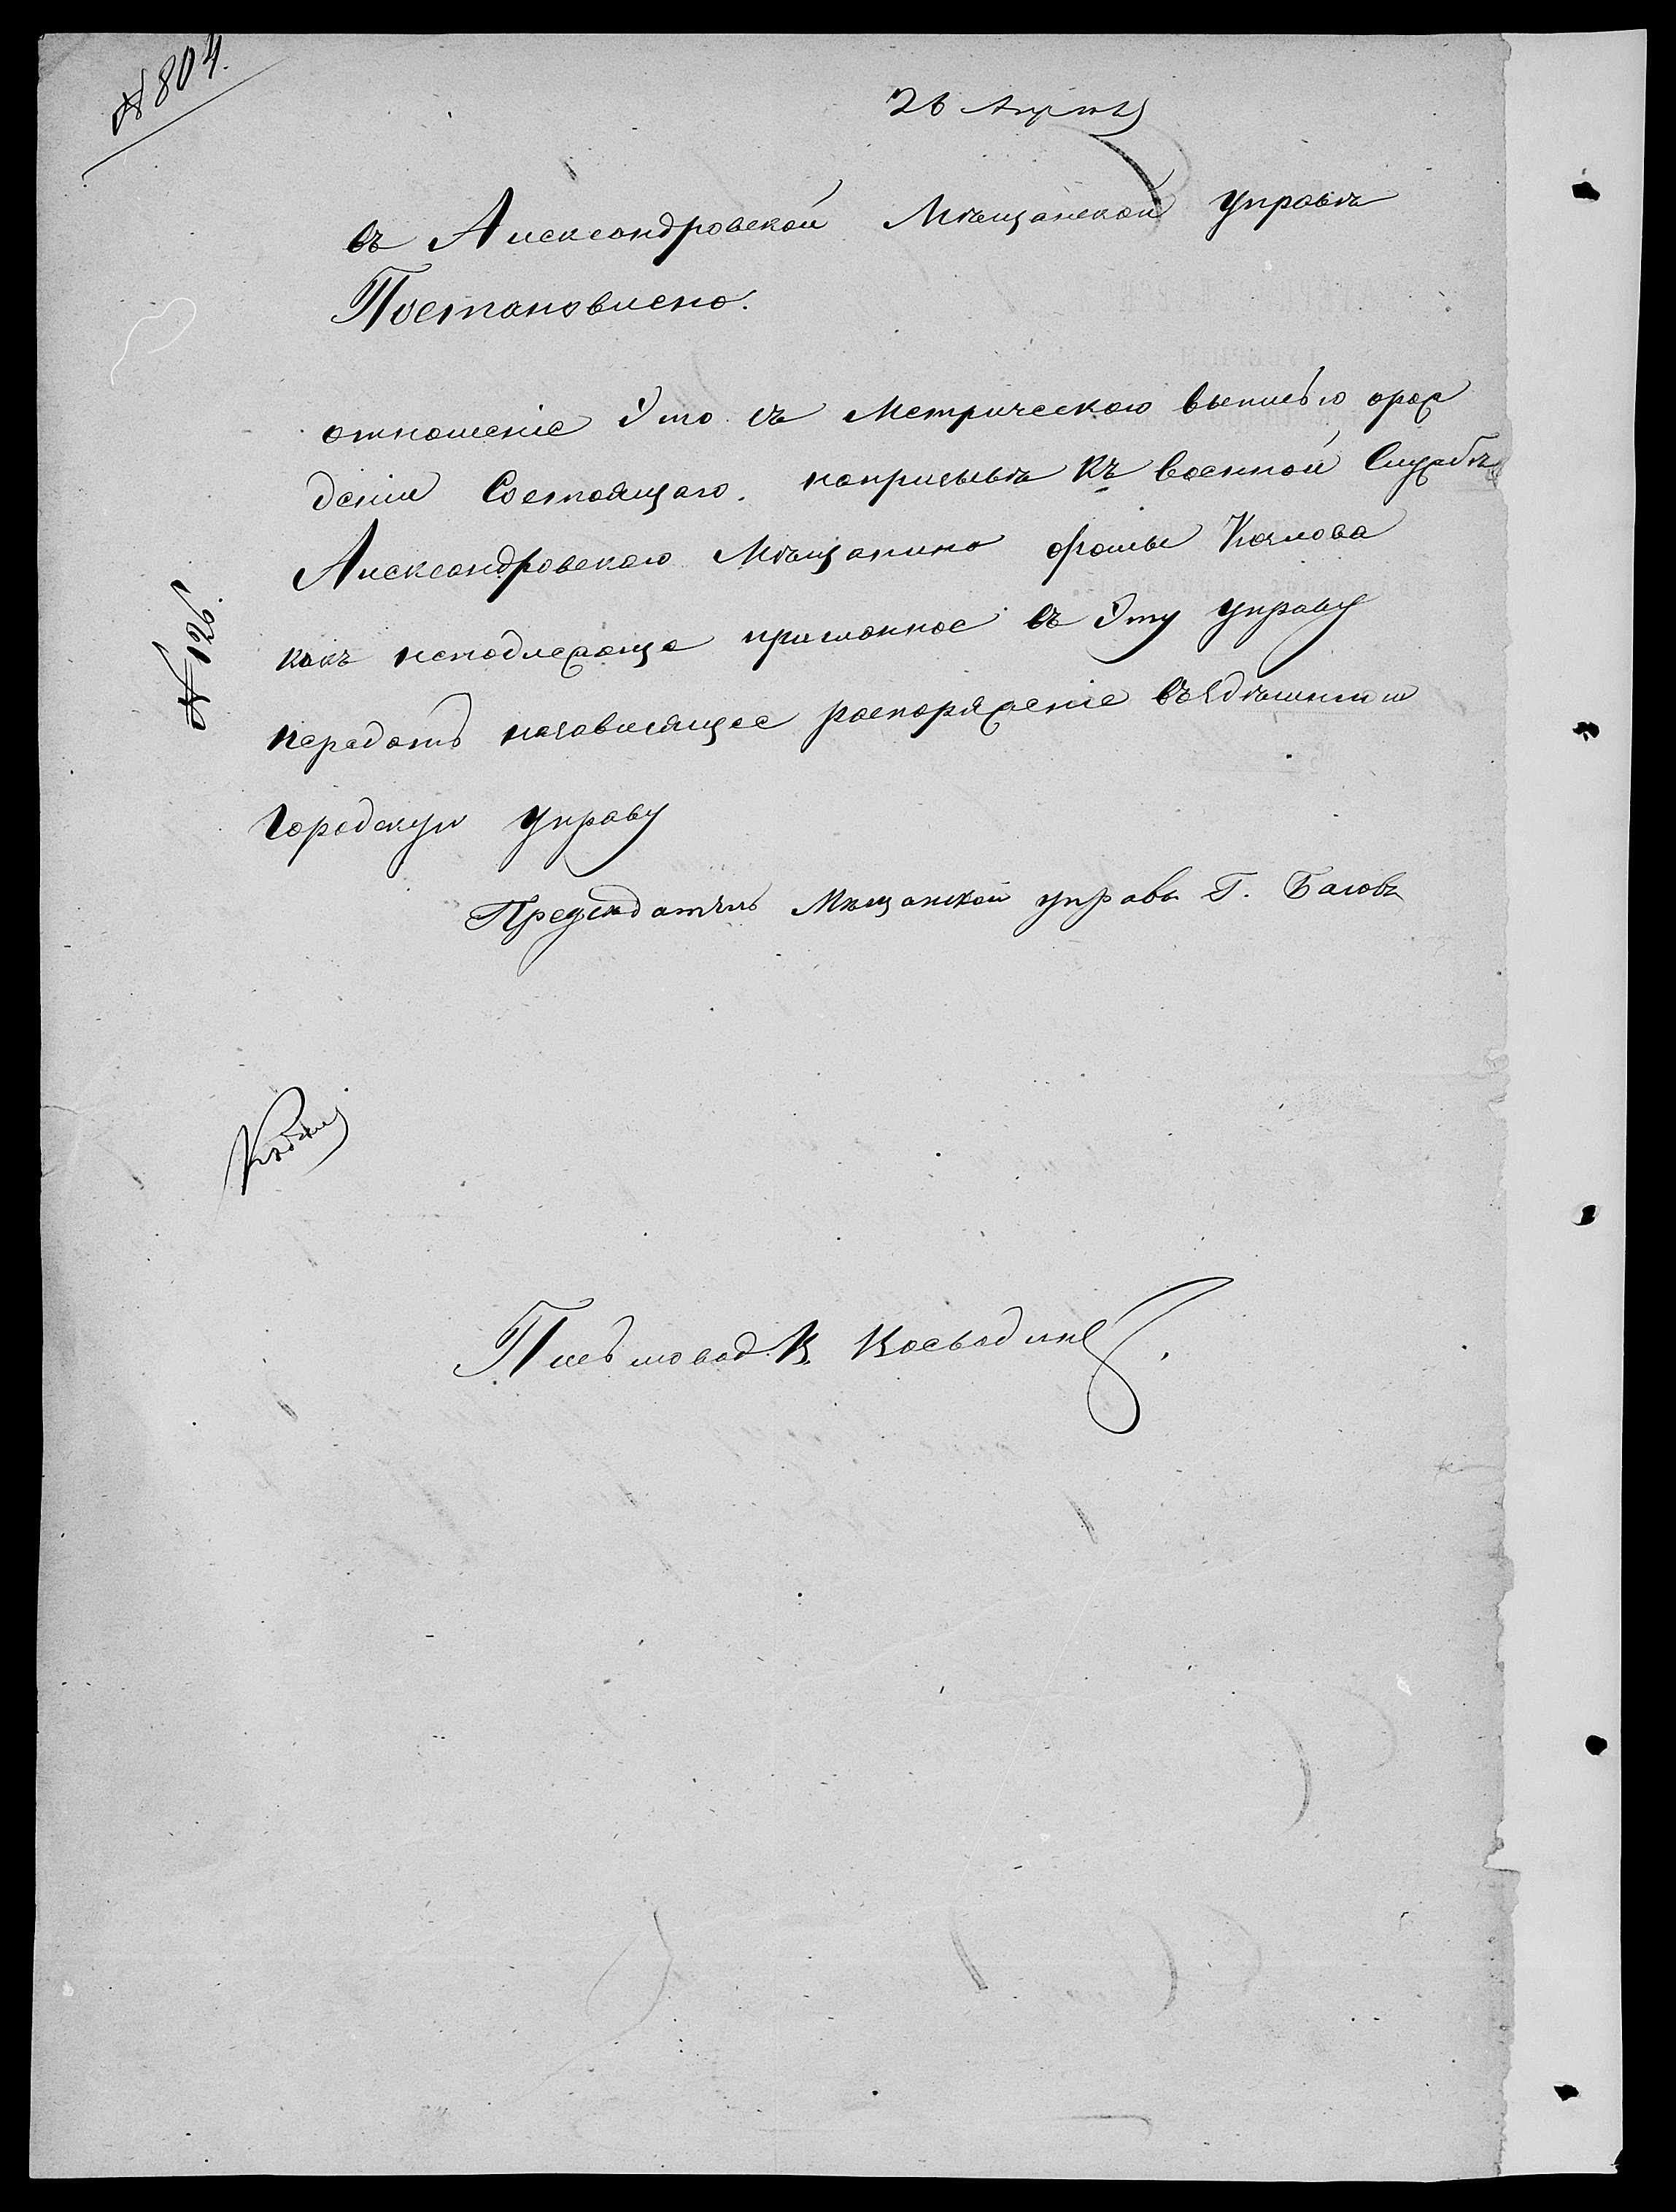 № 804.
26 Апрѣля
въ Александровской Мѣщанской управѣ
Постановлено.
отношеніе Это съ Метрическою выписью орож
деніи Состоящаго. напризывѣ Къ военной Службѣ
Александровскаго Мѣщанина фомы Козлова
какъ неподлежаще присланное въ Эту управу
№ 126.
передать назависящее распоряженіе въздѣшнюю
Городскую управу
Председатель Мѣщанской управы Г. Баловъ
Письмовод. К.